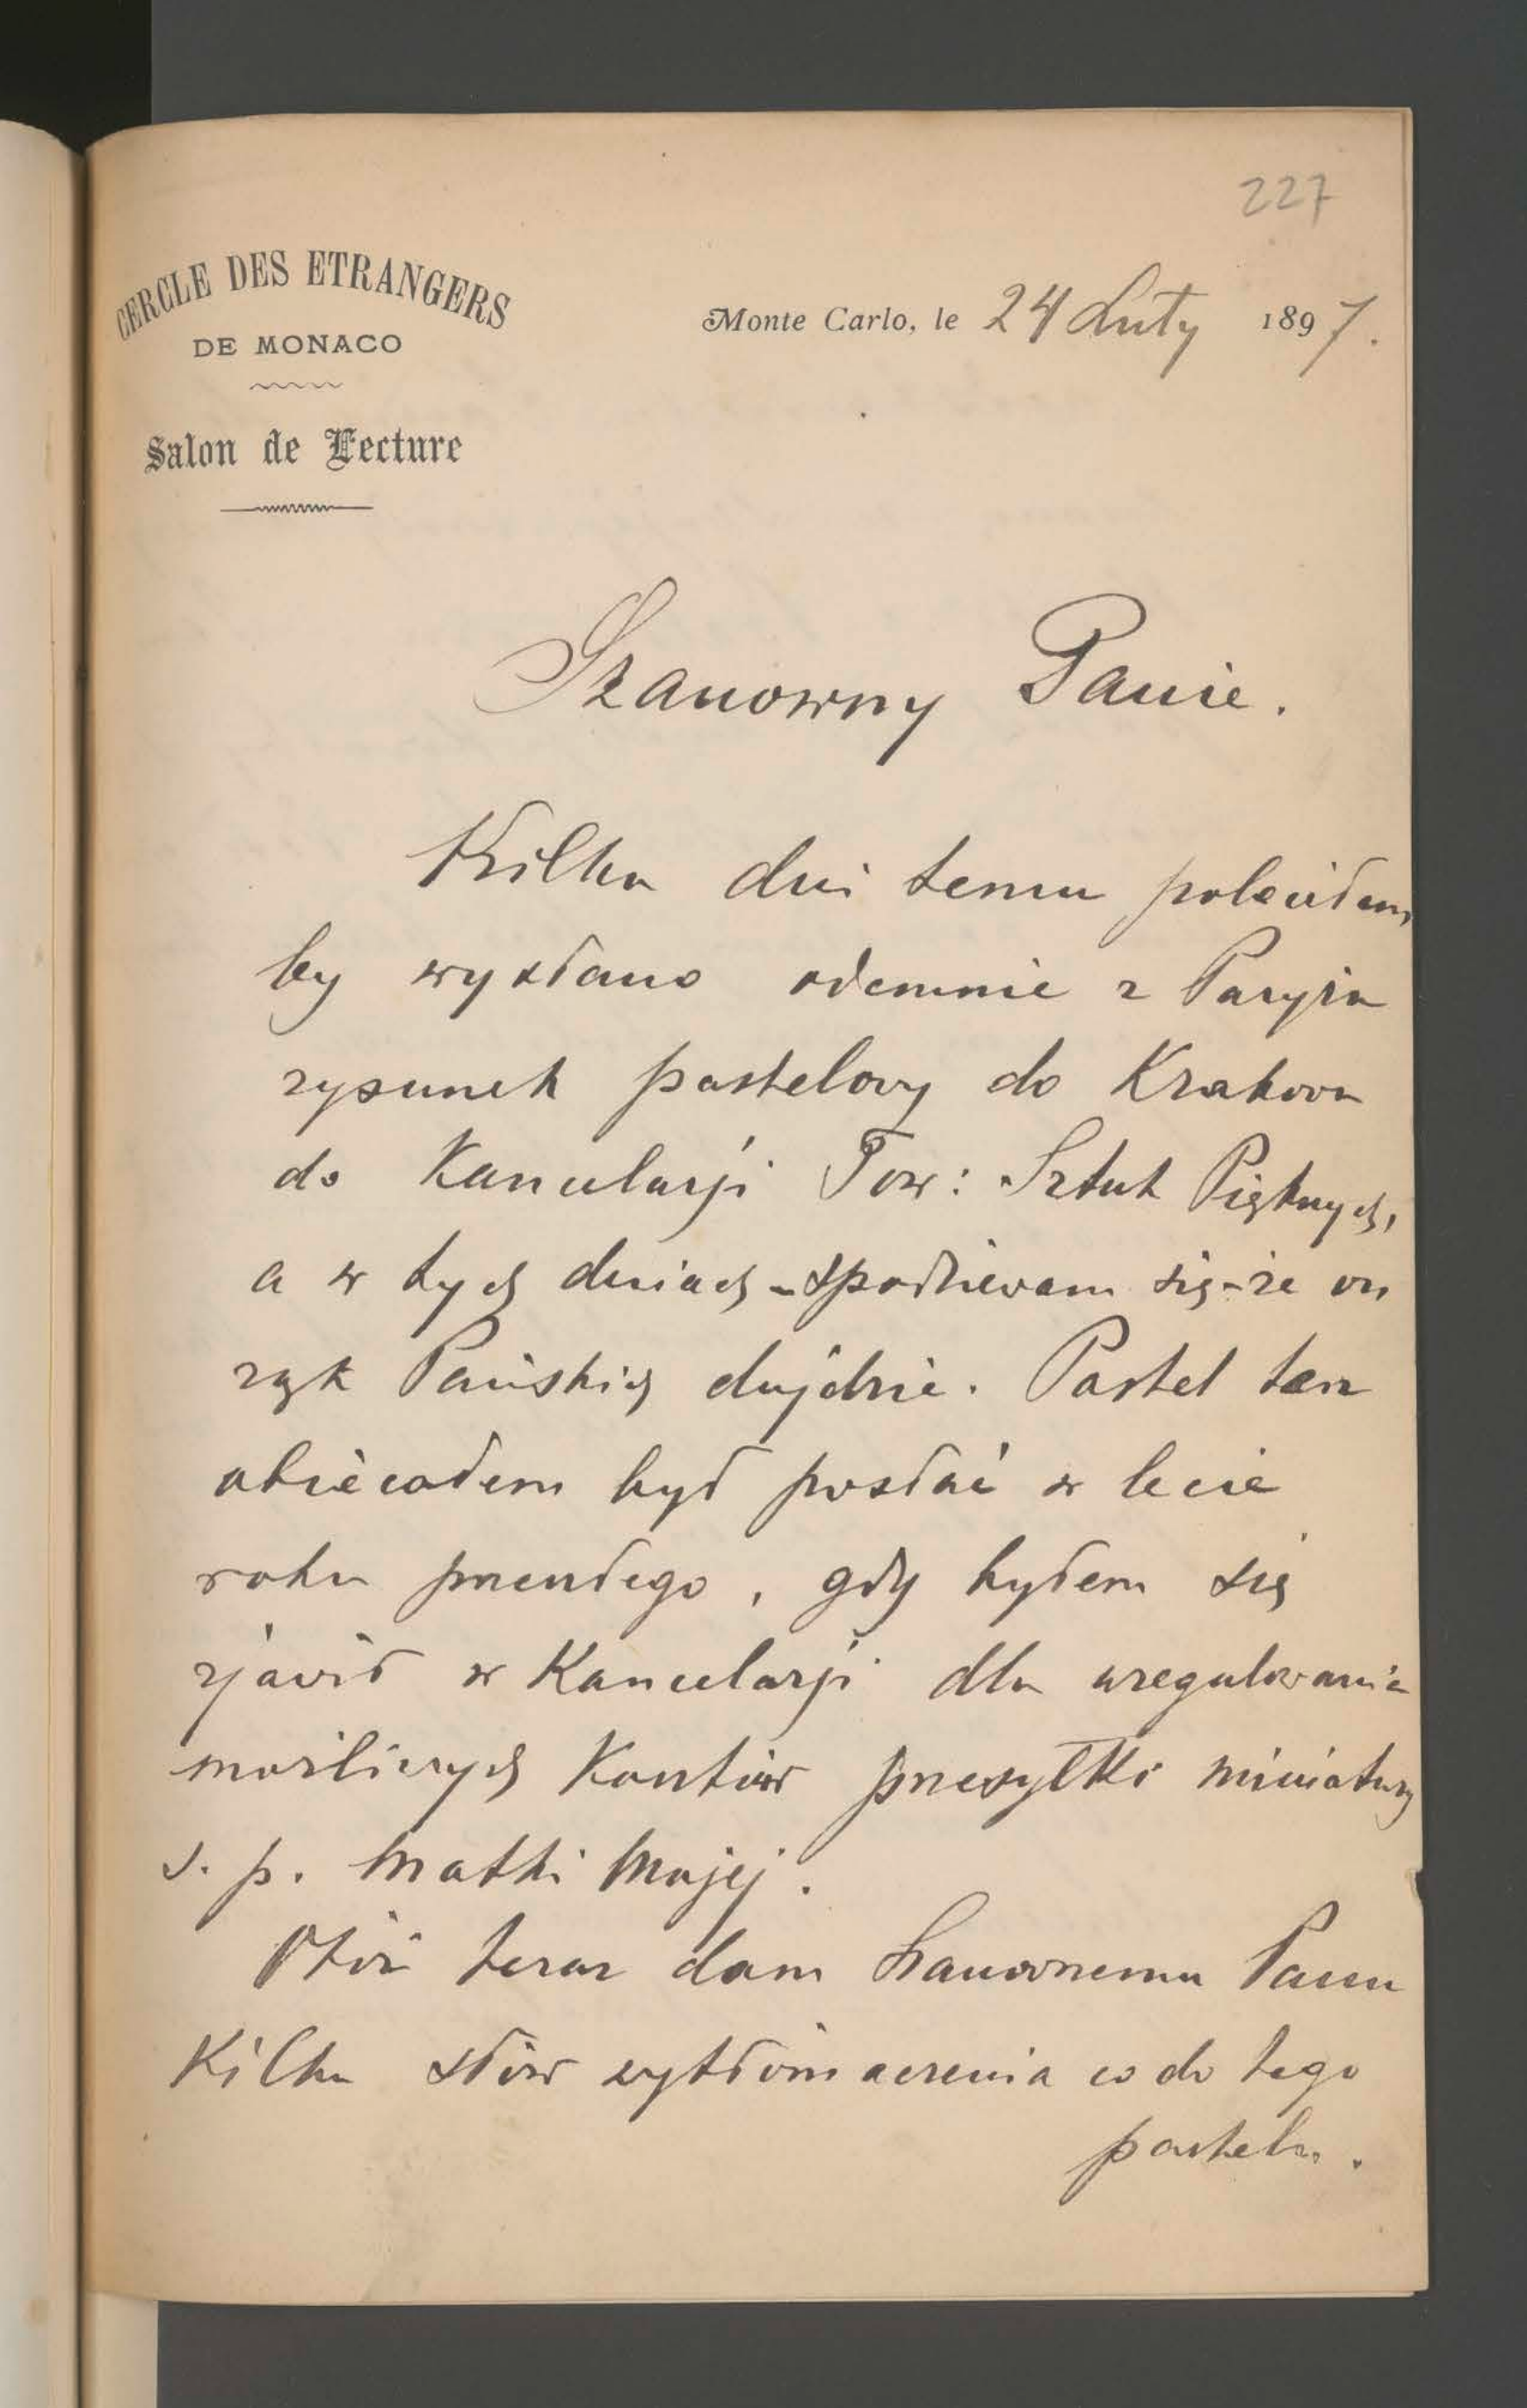 227
CERCLE DES ETRANGERS
DE MONACO
Salon de Lecture
Monte Carlo, le 24 Luty 1897.
Szanowny Panie.
Kilka dni temu poleciłem
by wysłano odemnie z Paryża
rysunek pastelowy do Krakowa
do Kancelarji Tow: Sztuk Pięknych,
a w tych dniach – spodziewam się – że on
rąk Pańskich dojdzie. Pastel ten
obiecałem był posłać w lecie
roku przeszłego, gdy byłem się
zjawił w Kancelarji dla uregulowania
możliwych Kosztów przesyłki miniatury
ś. p. Matki Mojej.
Otóż teraz dam Szanownemu Panu
Kilka słów wytłómaczenia co do tego
pastelu.